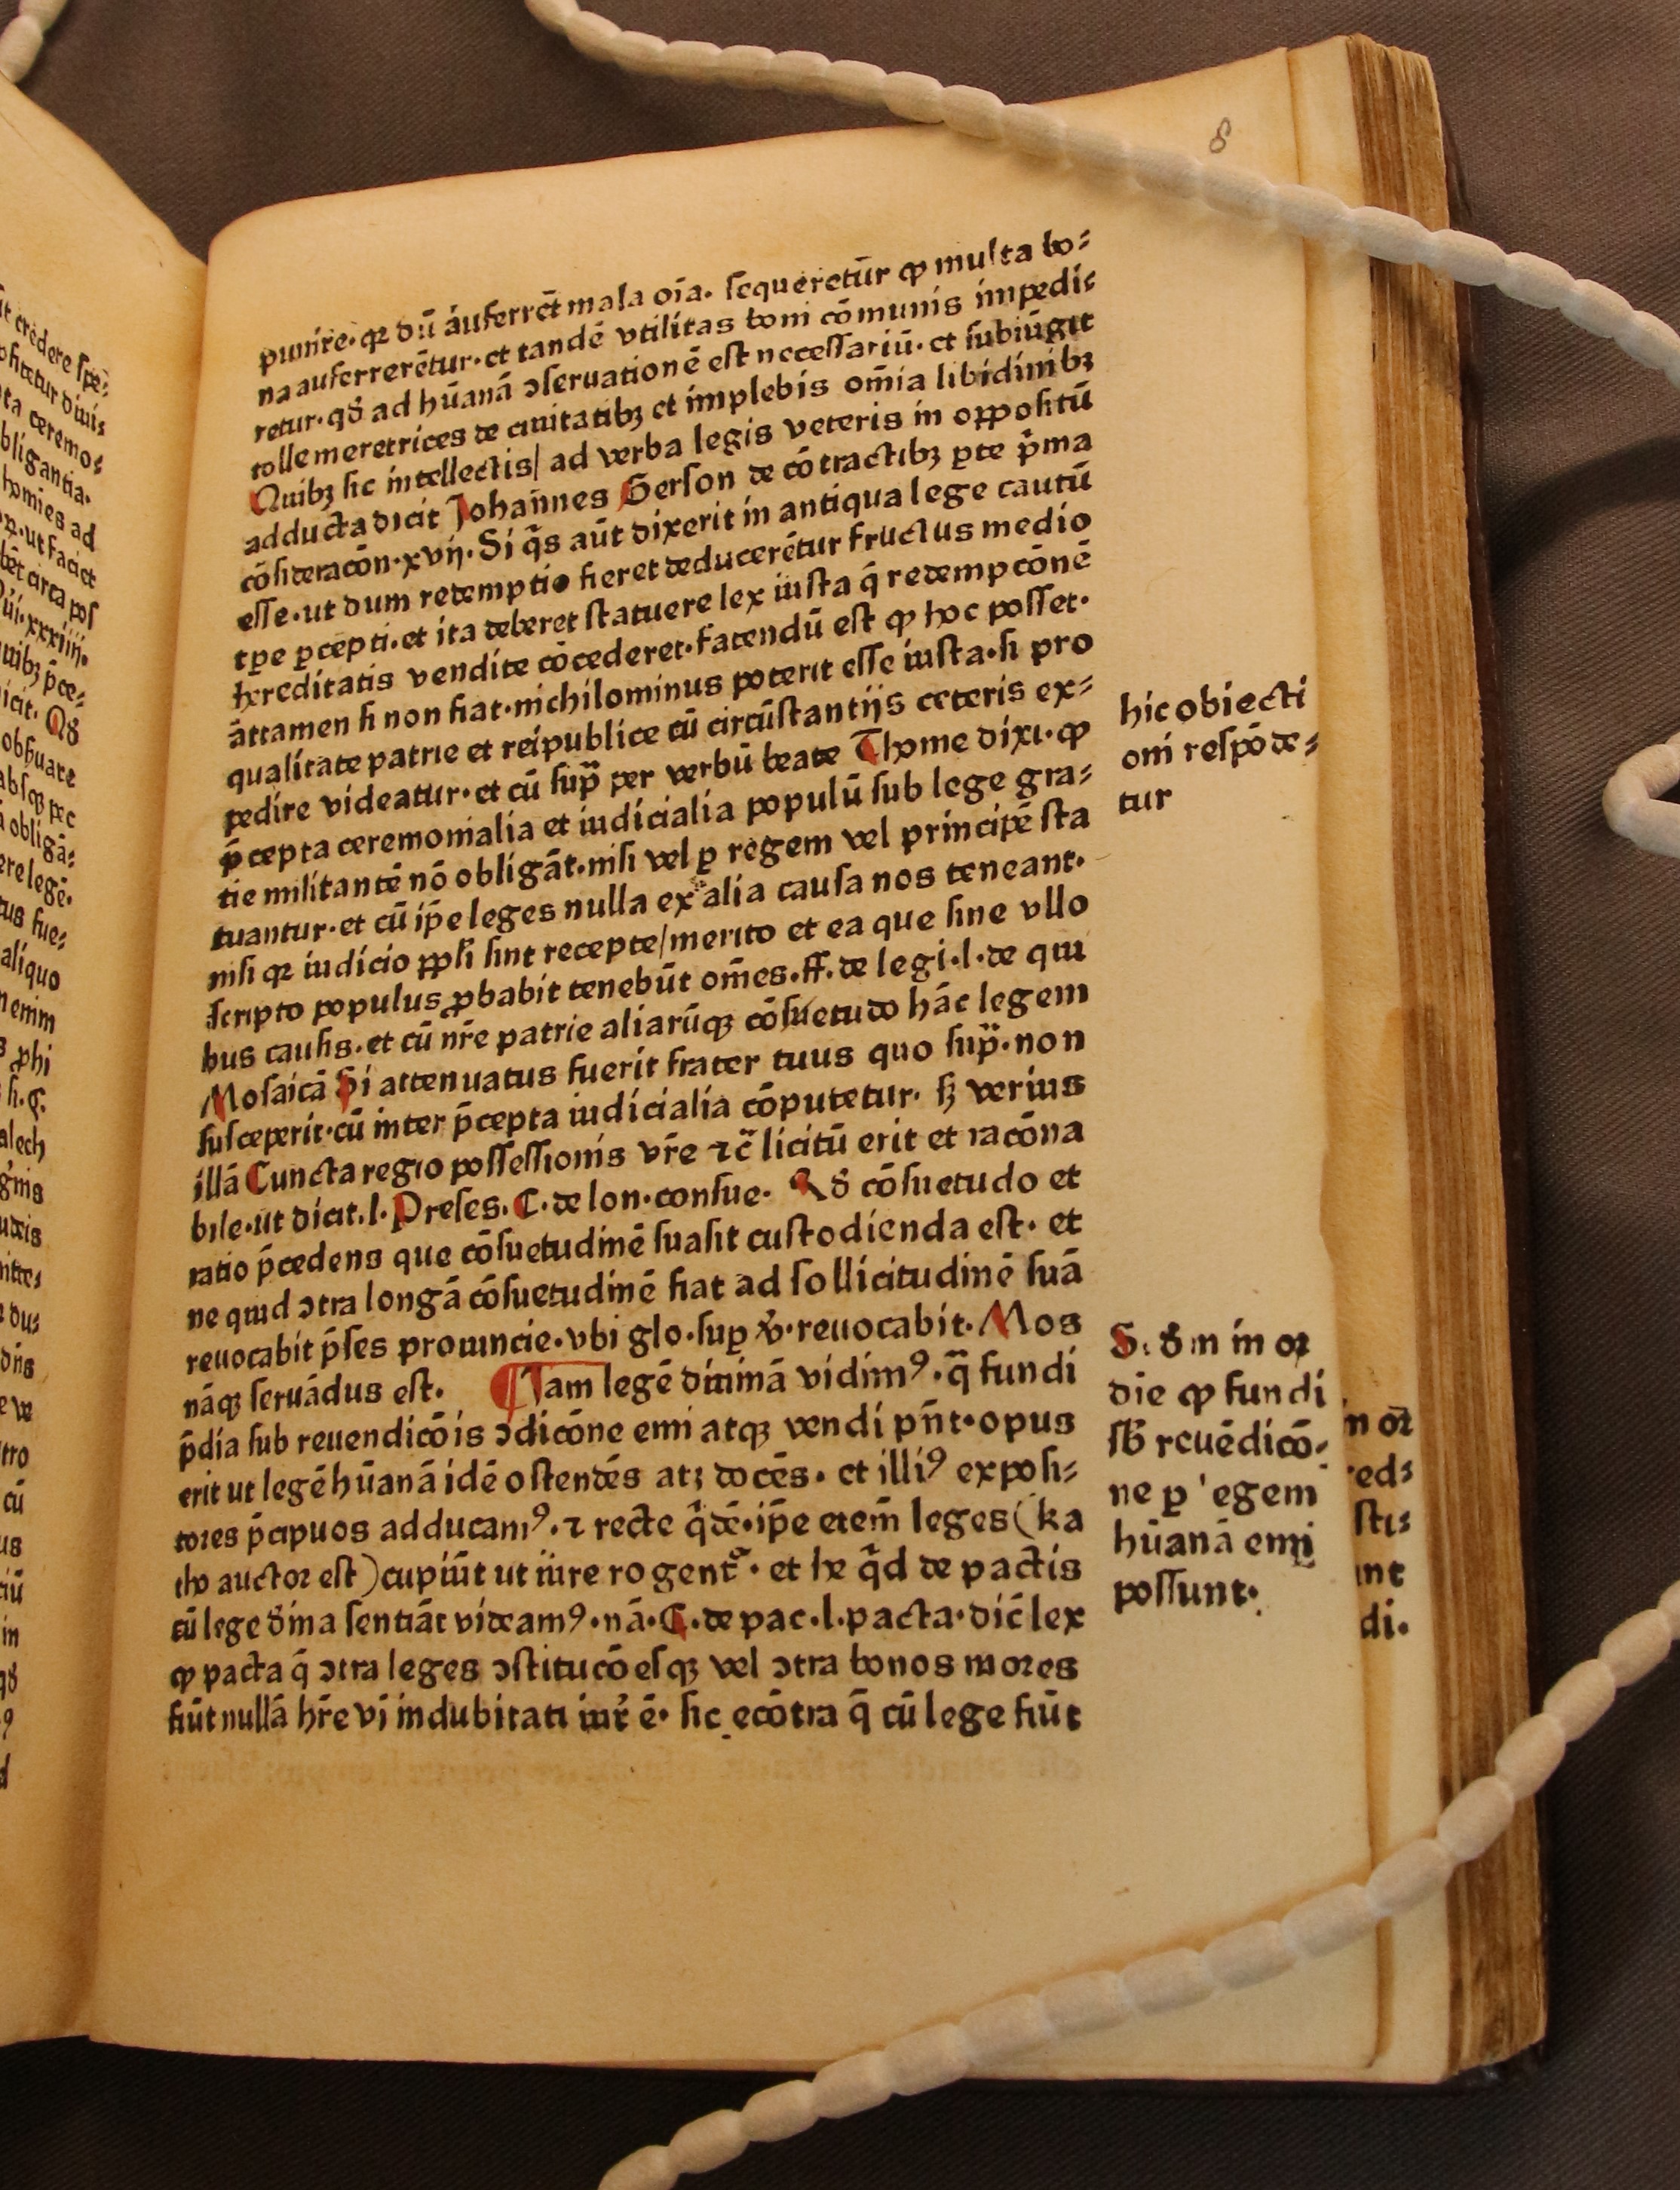 8
punire. qꝛ dū áuferrēt mala oīa. sequeretūr ꝙ multa bo⸗
na auferrerētur. et tandē vtilitas boni cōmunis impedi⸗
retur. qd̄ ad hūanā ↄseruationē est necessariū. et subiūgit
tolle meretrices de ciuitatibꝫ et implebis om̄ia libidinibꝫ
Quibꝫ sic intellectis/ ad verba legis veteris in oppositū
adducta dicit Johannes Gerson de cōtractibꝫ ꝑte p̄ma
cōsideracōn. xvij. Si q̄s aūt dixerit in antiqua lege cautū
esse. ut dum redemptio fieret deducerētur fructus medio
tꝑe ꝑcepti. et ita deberet statuere lex iusta q̄ redempcōnē
hereditatis vendite cōcederet. Fatendū est ꝙ hoc posset.
āttamen si non fiat. nichilominus poterit esse iusta. si pro
qualitate patrie et reipublice cū circūstantijs ceteris ex⸗
pedire videatur. et cū sup̄ per verbū beate Thome dixi. ꝙ
p̄cepta ceremonialia et iudicialia populū sub lege gra⸗
tie militantē nō obligāt. nisi vel ꝑ regem vel principē sta
tuantur. et cū ip̄e leges nulla ex alia causa nos teneant.
nisi qꝛ iudicio ꝓpli sint recepte/ merito et ea que sine vllo
scripto populus ꝓbabit tenebūt om̄es. ff. de legi. l. de qui
bus causis. et cū nr̄e patrie aliarūqꝫ cōsuetudo hāc legem
Mosaicā Si attenuatus fuerit frater tuus quo sup̄. non
susceperit. cū inter p̄cepta iudicialia cōputetur. sꝫ verius
illā Cuncta regio possessionis vr̄e ⁊c̄ licitū erit et racōna
bile. ut dicit. l. Preses. C. de lon. consue. Nā cōsuetudo et
ratio p̄cedens que cōsuetudinē suasit custodienda est. et
ne quid ↄtra longā cōsuetudinē fiat ad sollicitudinē suā
reuocabit p̄ses prouincie. vbi glo. suꝑ v̄. reuocabit. Mos
nāqꝫ seruādus est. ¶ Iam legē diuinā vidimꝰ. q̄ fundi
p̄dia sub reuendicōis ↄdicōne emi atqꝫ vendi pn̄t. opus
erit ut legē hūanā idē ostendēs atꝫ docēs. et illiꝰ exposi⸗
tores p̄cipuos adducamꝰ. ⁊ recte q̄dē. ip̄e etem̄ leges (ka
tho auctor est) cupiūt ut iure rogent᷑. et he q̄d de pactis
cū lege d̄ina sentiāt videamꝰ. nā. C. de pac. l. pacta. dic̄ lex
ꝙ pacta q̄ ↄtra leges ↄstitucōesqꝫ vel ↄtra bonos mores
fiūt nullā hr̄e vī indubitati iur̄ ē. sic ecōtra q̄ cū lege fiūt
hic obiecti
oni respōde⸗
tur
in oꝛ
die ꝙ fundi
sb̄ reuēdicō⸗
ne ꝑ legem
hūanā emi
possunt.